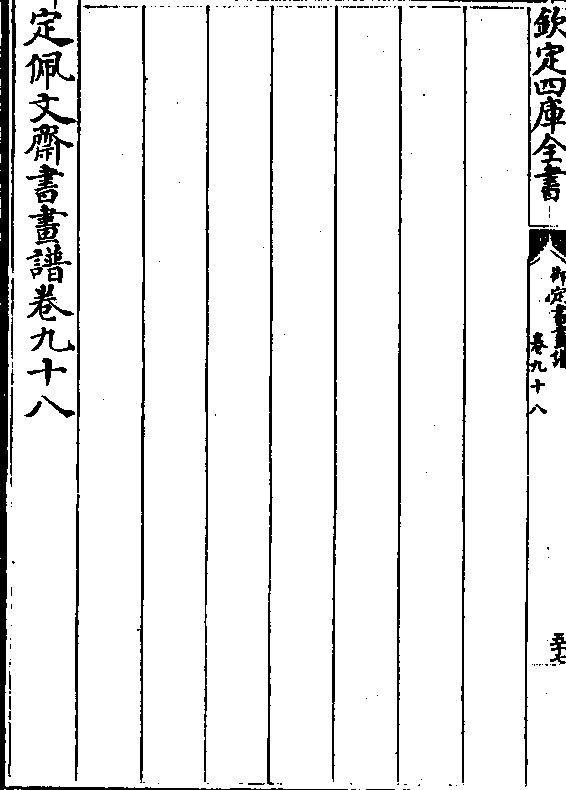 欽定四庫全書
御定書畫譜
卷九十八
五十七
定佩文齋書畫譜卷九十八